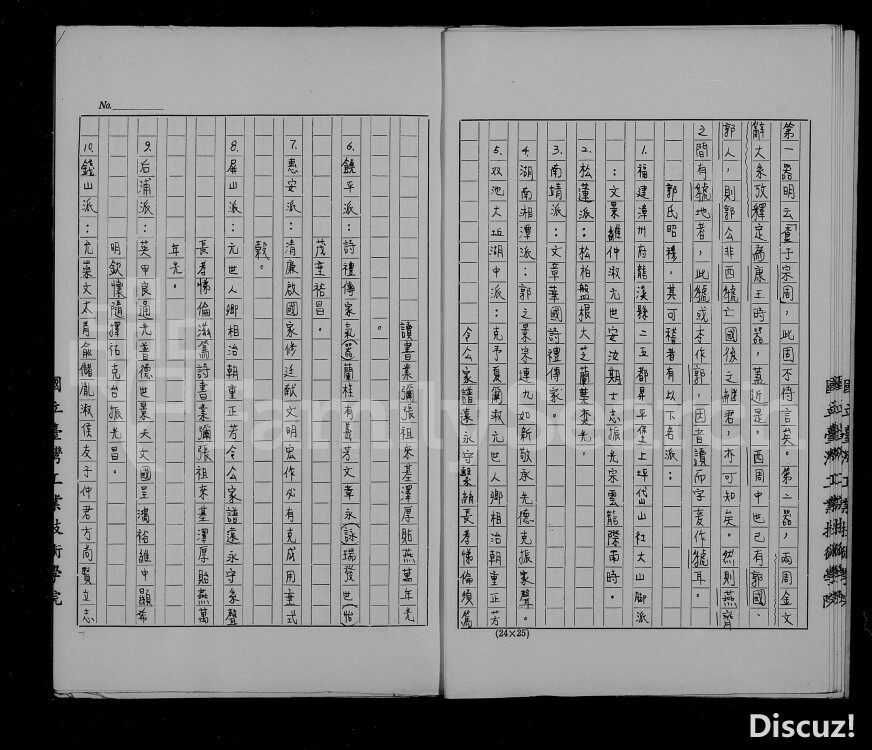 第一器明云虞子宗周，此周不待言矣。第二器，兩周金文
辭大系攷釋定為康王時器，蓋近是。西周中世已有郭國、
郭人，則郭公非西虢亡國後之継君，亦可知矣。然則燕齊
之間有虢地者，此虢或本作郭，因音讀而字妄作虢耳。
郭氏昭穆，其可稽者有以下各派：
1. 福建漳州府龍溪縣二五都昇平堡上坪岱山社大山腳派
：文景維仲淑元世安汝期士志振光宗雲龍際南時。
2. 松蓮派：松柏盤根大芝蘭奕光。
3. 南靖派：文章華國詩禮傳家。
4. 湖南湘潭派：郭之景宗連九如新敬承先德克振家聲。
5. 双池大坵湖中派：克予夏爾淑元世人卿相治朝重正芳
令公家譜遠永守繫綿長孝悌倫須篤
讀書業彌張祖來基澤厚貽燕萬年光
。
6. 饒平派：詩禮傳家氣（器）蘭桂有長芳文章永（詠）瑞發世（怡）
茂奎裕昌。
7. 惠安派：清廉啟國家修廷献文明宏作必有克成用垂式
穀。
8. 屏山派：元世人卿相治朝重正芳令公家譜遠永守系聲
長孝悌倫滋篤詩書業彌張祖來基澤厚貽燕萬
年光。
9. 后浦派：英甲良通光普德世景天文國呈鴻裕維中顯希
明欽懷隨擇祐克台振光昌。
10. 錢山派：允崇文太肖俞儲胤淑侯友子仲君方尚賢立志
No.
(24×25)
國立臺灣工業技術學院
國立臺灣工業技術學院
FamilySearch
Discuz!